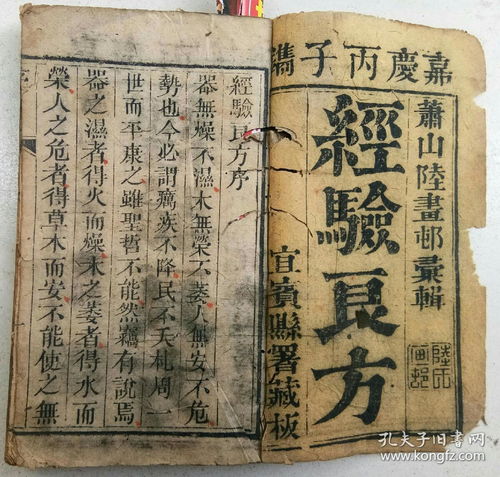 嘉慶丙子鐫
蕭山陸畫邨彙輯
經驗良方
宜賓縣署藏板
陸氏畫邨
經驗良方序
器無燥不濕木無榮不萎人無安不危
勢也今必謂癘疾不降民不夭札周一
世而平康之雖聖哲不能然竊有說焉
器之濕者得火而燥木之萎者得水而
榮人之危者得草木而安不能使之無
孔夫子旧书网
www.kongfz.com